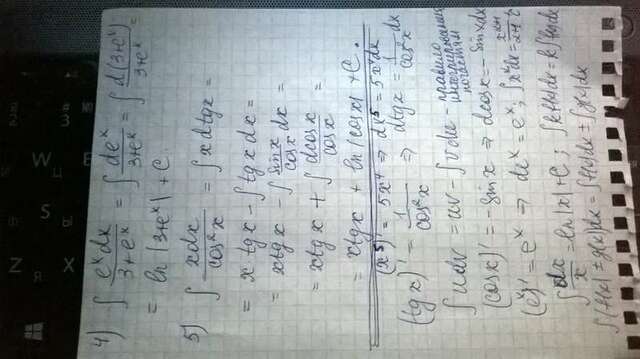 4) ∫ eˣdx / 3+eˣ = ∫ deˣ / 3+eˣ = ∫ d(3+eˣ) / 3+eˣ =
= ln |3+eˣ| + C.
5) ∫ xdx / cos²x = ∫ x dtgx =
= x tgx - ∫ tgx dx =
= xtgx - ∫ sinx / cosx dx =
= xtgx + ∫ dcosx / cosx =
= xtgx + ln |cosx| + C.
(x⁵)' = 5x⁴ ⇒ dx⁵ = 5x⁴dx
(tgx)' = 1 / cos²x ⇒ dtgx = 1 / cos²x dx
∫ udv = uv - ∫ vdu - правило интегрирования по частям
(cosx)' = -sinx ⇒ dcosx = -sinxdx
(eˣ)' = eˣ ⇒ deˣ = eˣ;
∫ dx / x = ln |x| + C; ∫ kf(x)dx = k∫ f(x)dx
∫ (f(x) ± g(x))dx = ∫ f(x)dx ± ∫ g(x)dx
Z Я
S Ы
W Ц
X
З